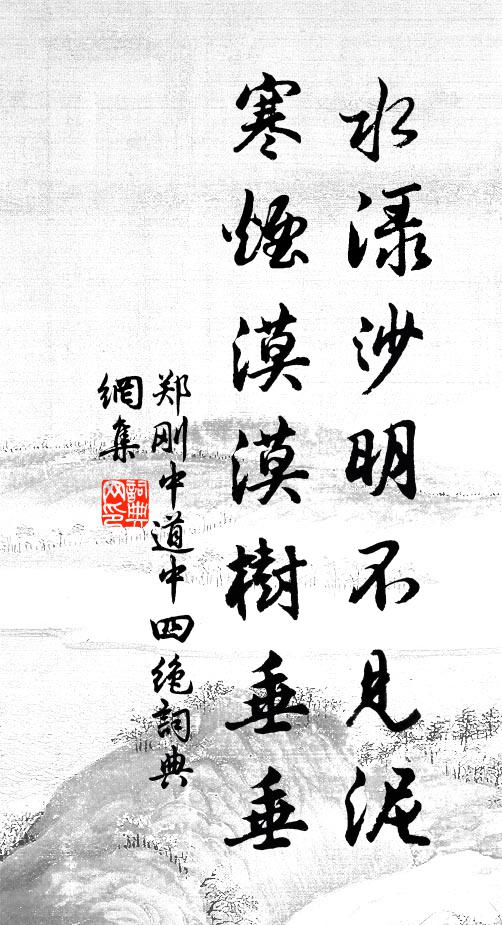 水渌沙明不见泥
寒烟漠漠樹垂垂
郑刚中道中四绝詞典
網集
詞典網印